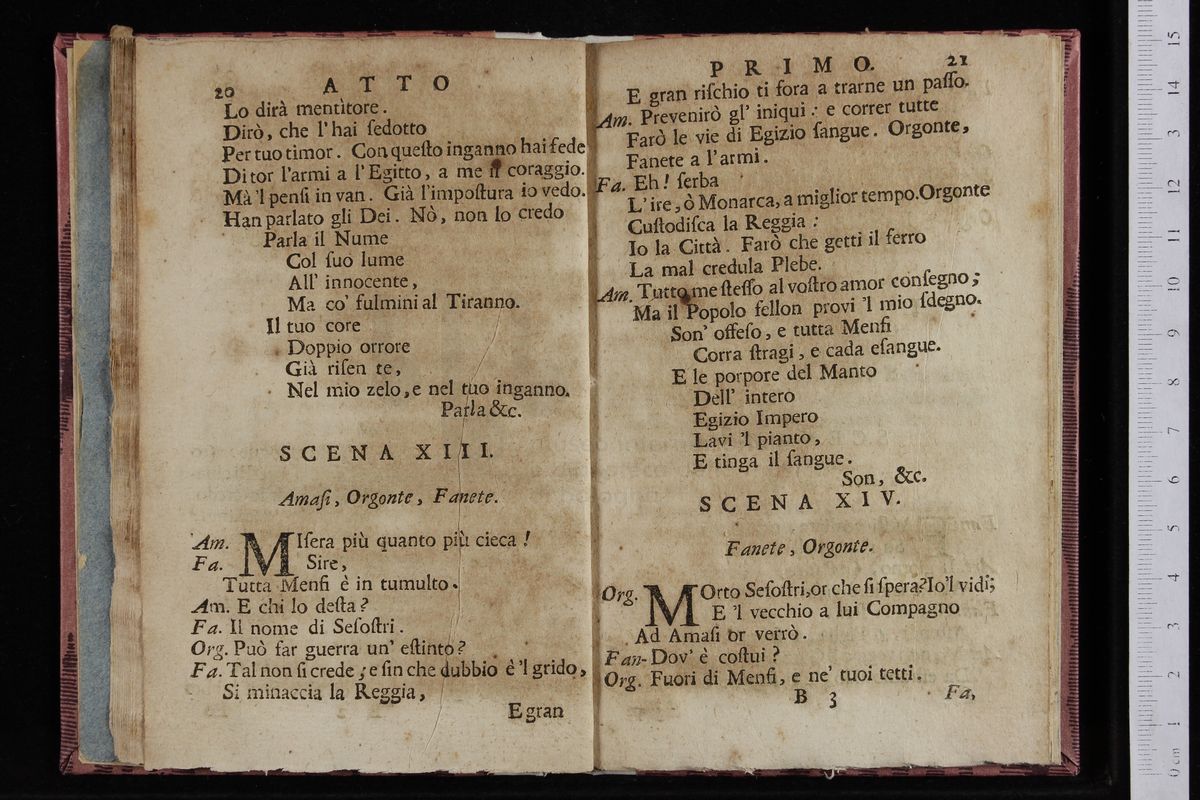 20 ATTO
Lo dirà mentìtore.
Dirò, che l'hai ſedotto
Per tuo timor. Con queſto inganno hai fede
Di tor l'armi a l'Egitto, a me il coraggio.
Mà 'l penſi in van. Già l'impoſtura io vedo.
Han parlato gli Dei. Nò, non lo credo
Parla il Nume
Col ſuo lume
All' innocente,
Ma co' fulmini al Tiranno.
Il tuo core
Doppio orrore
Già riſen te,
Nel mio zelo, e nel tuo inganno.
Parla &c.
SCENA XIII.
Amaſi, Orgonte, Fanete.
Am. MIſera più quanto più cieca !
Fa. Sire,
Tutta Menfi è in tumulto.
Am. E chi lo deſta ?
Fa. Il nome di Seſoſtri.
Org. Può far guerra un' eſtinto ?
Fa. Tal non ſi crede ; e ſin che dubbio è 'l grido,
Si minaccia la Reggia,
E gran
PRIMO. 21
E gran riſchio ti fora a trarne un paſſo.
Am. Prevenirò gl' iniqui : e correr tutte
Farò le vie di Egizio ſangue. Orgonte,
Fanete a l'armi.
Fa. Eh ! ſerba
L'ire, ò Monarca, a miglior tempo. Orgonte
Cuſtodiſca la Reggia :
Io la Città. Farò che getti il ferro
La mal credula Plebe.
Am. Tutto me ſteſſo al voſtro amor conſegno ;
Ma il Popolo fellon provi 'l mio ſdegno.
Son' offeſo, e tutta Menfi
Corra ſtragi, e cada eſangue.
E le porpore del Manto
Dell' intero
Egizio Impero
Lavi 'l pianto,
E tinga il ſangue.
Son, &c.
SCENA XIV.
Fanete, Orgonte.
Org. MOrto Seſoſtri, or che ſi ſpera? Io 'l vidi;
E 'l vecchio a lui Compagno
Ad Amaſi or verrò.
Fan- Dov' è coſtui ?
Org. Fuori di Menfi, e ne' tuoi tetti.
B 3 Fa,
0 cm 1 2 3 4 5 6 7 8 9 10 11 12 13 14 15